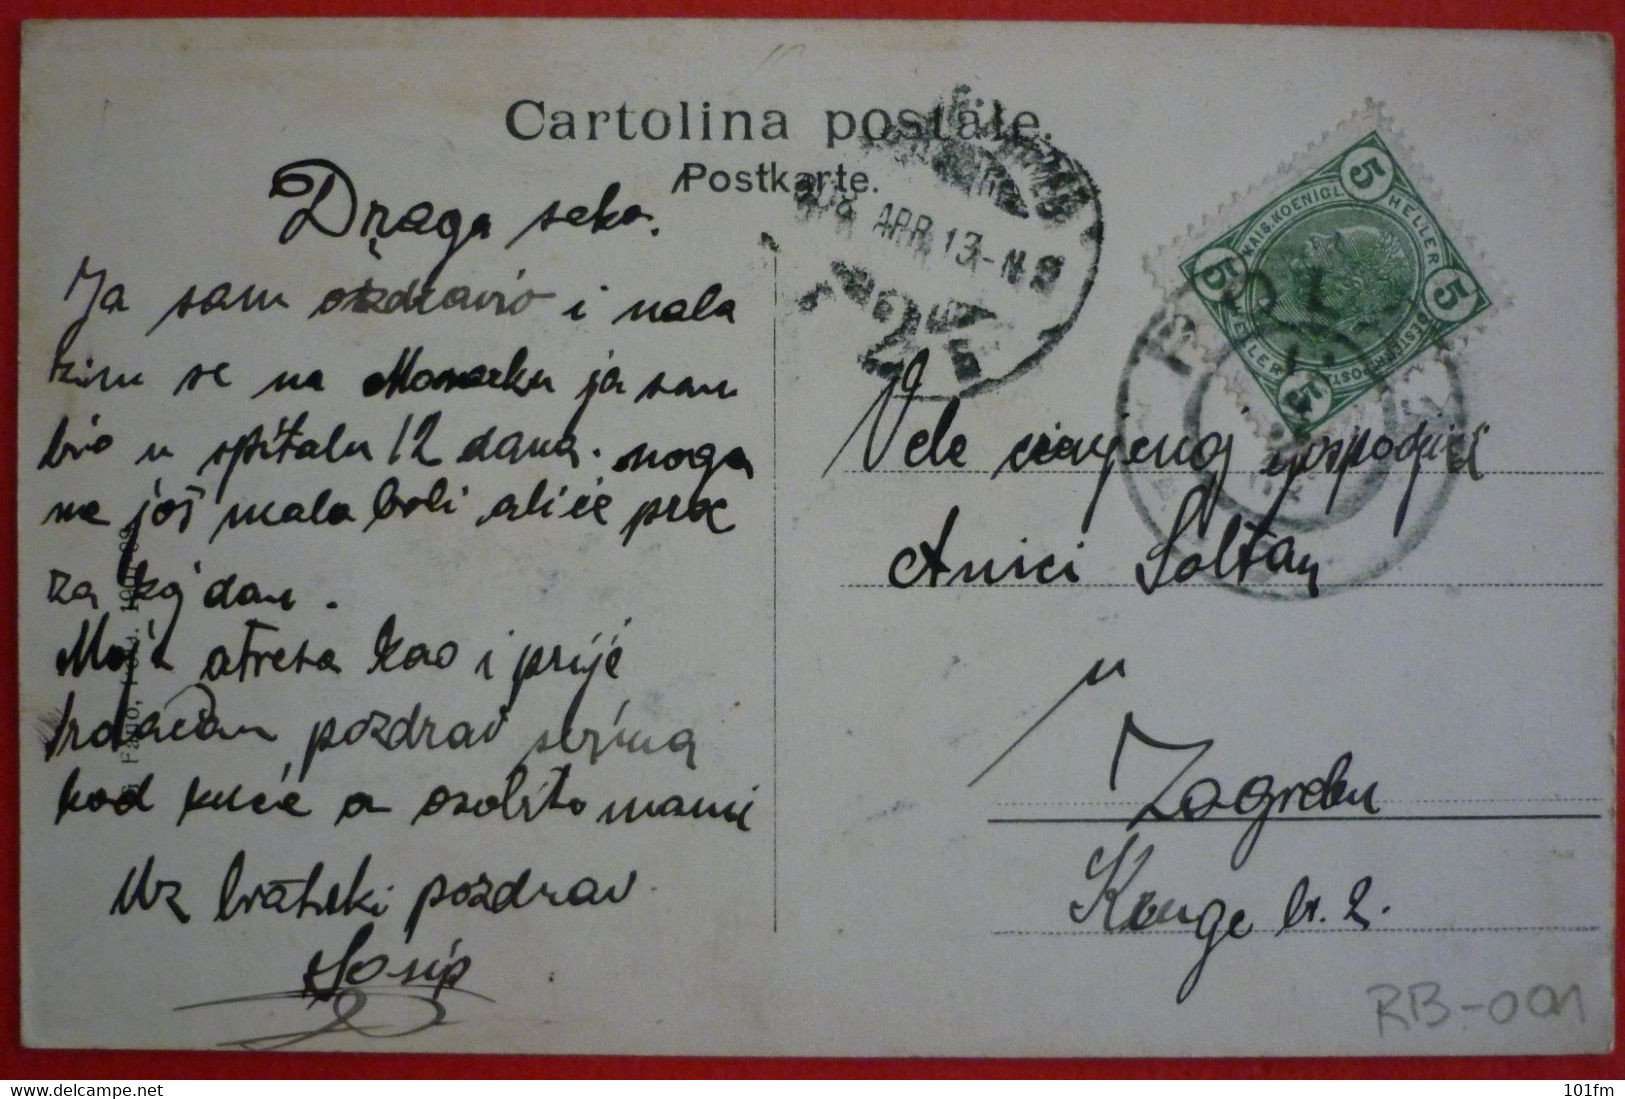 Cartolina postale.
Postkarte.
Draga seka.
Ja sam ozdravio i nala
zim se na Monarku ja sam
bio u špitalu 12 dana. noga
me još malo boli ali će proc
za koj dan.
Moja atresa kao i prije
pozdrav svima
kod kuće a osobito mami
Uz bratski pozdrav
Josip
908 APR 13-N
2
5 HELLER 5
KAIS. KOENIGL.
OESTERR. POST
5 HELLER 5
Vele cienjenoj gospodjici
Anici Soltan
u
Zagrebu
Kruge br. 2.
RB-001
www.delcampe.net
101fm